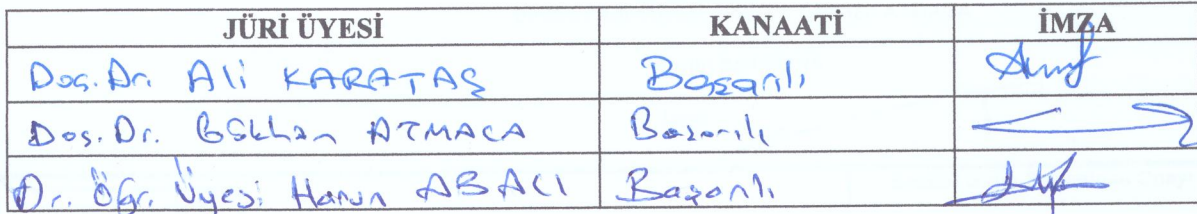 JÜRİ ÜYESİ KANAATİ İMZA
Doç. Dr. Ali KARATAŞ Başarılı
Doç. Dr. Gökhan ATMACA Başarılı
Dr. Öğr. Üyesi Harun ABACI Başarılı